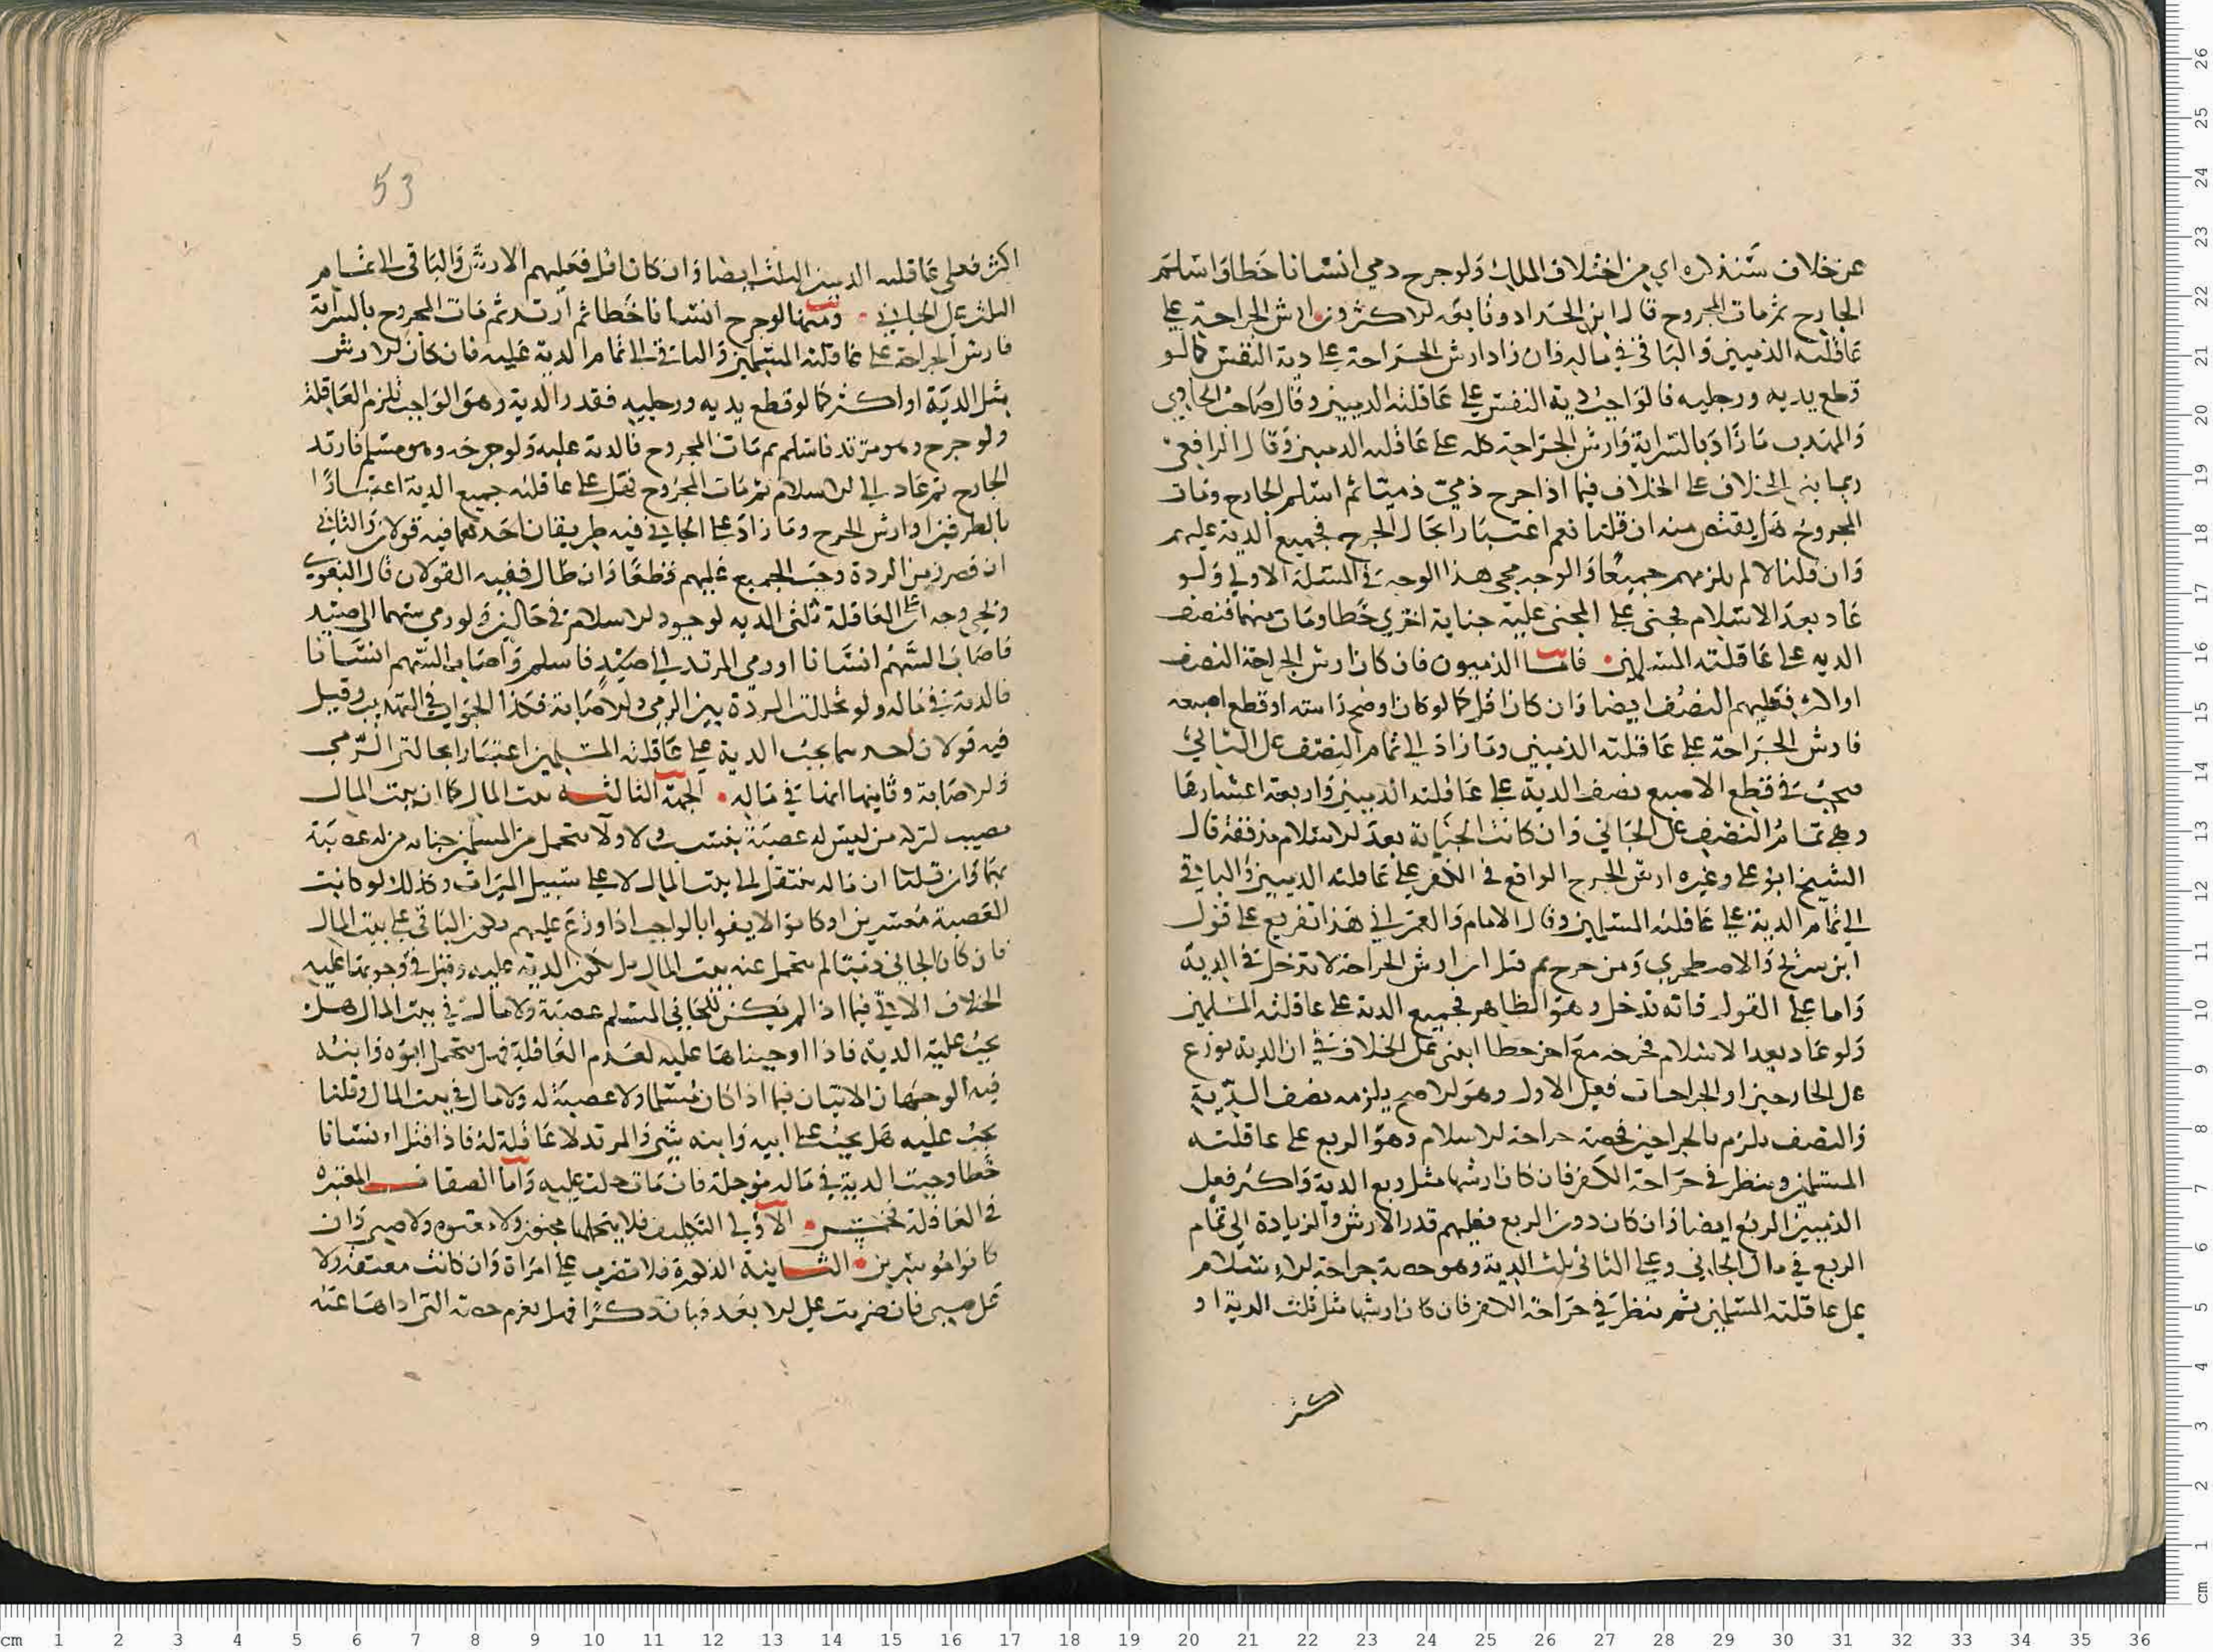 عن خلاف سنذكره اي من اختلاف الملك ولو جرح ذمي انسانا خطا واسلم
الجارح ثم مات المجروح قال ابن الحداد وتابعوه الاكثرون ارش الجراحة على
عاقلته الذميين والباقي في ماله فان زاد ارش الجراحة على دية النفس كما لو
قطع يديه ورجليه فالواجب دية النفس على عاقلته الذميين وقال صاحب الحاوي
والمهذب ما زاد بالسراية وارش الجراحة كله على عاقلته الذميين وقال الرافعي
ربما بني الخلاف على الخلاف فيما اذا جرح ذمي ذميا ثم اسلم الجارح ومات
المجروح هل يقتص منه ان قلنا نعم اعتبارا بحال الجرح فجميع الدية عليهم
وان قلنا لا لم يلزمهم جميعا والوجه مجي هذا الوجه في المسئلة الاولي ولو
عاد بعد الاسلام فجنى على المجني عليه جناية اخري خطا ومات منهما فنصف
الدية على عاقلته المسلمين فاما الذميون فان كان ارش الجراحة النصف
او اكثر فعليهم النصف ايضا وان كان اقل كما لو كان اوضح راسه او قطع اصبعه
فارش الجراحة على عاقلته الذميين وما زاد الي تمام النصف على الجاني
فيجب في قطع الاصبع نصف الدية على عاقلته الذميين واربعة اعشارها
وهي تمام النصف على الجاني وان كانت الجناية بعد الاسلام مذففة قال
الشيخ ابو على وغيره ارش الجرح الواقع في الكفر على عاقلته الذميين والباقي
الي تمام الدية على عاقلته المسلمين وقال الامام والغزالي هذا تفريع على قول
ابن سريج والاصطخري ومن جرح ثم قتل ان ارش الجراحة لا تدخل في الدية
واما على القول فانه تدخل وهو الظاهر فجميع الدية على عاقلته المسلمين
ولو عاد بعد الاسلام فجرحه مع اخر خطا ابني على الخلاف في ان الدية توزع
على الجارحين او الجراحات فعلى الاول وهو الاصح يلزمه نصف الدية
والنصف يلزم بالجراحين فحصة جراحة الاسلام وهو الربع على عاقلته
المسلمين وينظر في جراحة الكفر فان كان ارشها مثل ربع الدية واكثر فعلى
الذميين الربع ايضا وان كان دون الربع فعليهم قدر الارش والزيادة الي تمام
الربع في مال الجاني وعلى الثاني ثلث الدية وهو حصة جراحة الاسلام
على عاقلته المسلمين ثم ينظر في جراحة الكفر فان كان ارشها مثل ثلث الدية او
اكثر
53
اكثر فعلى عاقلته الذميين الثلث ايضا وان كان اقل فعليهم الارش والباقي الي تمام
الثلث على الجاني ومنها لو جرح انسانا خطا ثم ارتد ثم مات المجروح بالسراية
فارش الجراحة على عاقلته المسلمين والباقي الي تمام الدية عليه فان كان الارش
مثل الدية او اكثر كما لو قطع يديه ورجليه فقدر الدية وهو الواجب تلزم العاقلة
ولو جرح وهو مرتد فاسلم ثم مات المجروح فالدية عليه ولو جرحه وهو مسلم فارتد
الجارح ثم عاد الي الاسلام ثم مات المجروح فهل على عاقلته جميع الدية اعتبارا
بالطرفين او ارش الجرح وما زاد على الجاني فيه طريقان احدهما فيه قولان والثاني
ان قصر زمن الردة وجب الجميع عليهم قطعا وان طال ففيه القولان قال البغوي
ونجي وجه ان على العاقلة ثلثي الدية لوجود الاسلام في حالين ولو رمي سهما الي صيد
فاصاب السهم انسانا او رمي المرتد الي صيد فاسلم واصاب السهم انسانا
فالدية في ماله ولو تخللت الردة بين الرمي والاصابة فكذا الجواب في التهذيب وقيل
فيه قولان احدهما يجب الدية على عاقلته المسلمين اعتبارا بحالتي الرمي
والاصابة وثانيهما انها في ماله الجهة الثالثة بيت المال كما ان بيت المال
مصيب لتركة من ليس له عصبة بنسب ولا ولا يتحمل من المسلمين جناية من له عصبة
بهما وان قلنا ان ماله ينتقل الي بيت المال لا على سبيل الميراث وكذلك لو كانت
العصبة معسرين او كانوا لا يفوا بالواجب اذا وزع عليهم يكون الباقي على بيت المال
فان كان الجاني ذميا لم يتحمل عنه بيت المال بل تكون الدية عليه وقيل في وجوبها عليه
الخلاف الاتي فيما اذا لم يكن للجاني المسلم عصبة ولا مال في بيت المال هل
يجب عليه الدية فاذا اوجبناها عليه لعدم العاقلة فهل يتحمل ابوه وابنه
فيه الوجهان الاتيان فيما اذا كان مسلما ولا عصبة له ولا مال في بيت المال وقلنا
يجب عليه هل يجب على ابيه وابنه شي والمرتد لا عاقلة له فاذا قتل انسانا
خطا وجبت الدية في ماله موجلة فان مات حلت عليه واما الصفات المعتبرة
في العاقلة فخمس الاولي التكليف فلا يتحملها مجنون ولا معتوه ولا صبي وان
كانوا موسرين الثانية الذكورة فلا تضرب على امراة وان كانت معتقة ولا
على صبي فان ضربت على الا بعد فبان ذكرا فهل يغرم حصته التي اداها عنه